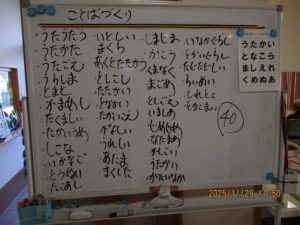 ことばづくり
うたうたう
うたかた
うたごえ
うらしま
とまと
かまめし
たくましい
たかいうめ
しこな
いかなご
とうぬい
たこあし
いとしい
まくら
あくとたたかう
としこし
たたかい
となかい
たかいこえ
かなしい
うれしい
あたま
まくした
しましま
かこう
くまなく
まごめ
としごえ
いましめ
じめじめ
なためめ
かしこい
うたがい
かたいなか
いなかぐらし
とかいぐらし
たどたどしい
らいめい
しれとこ
ときこまい
40
うたかい
となこら
ましえれ
くめぬあ
2025/11/29 11:50